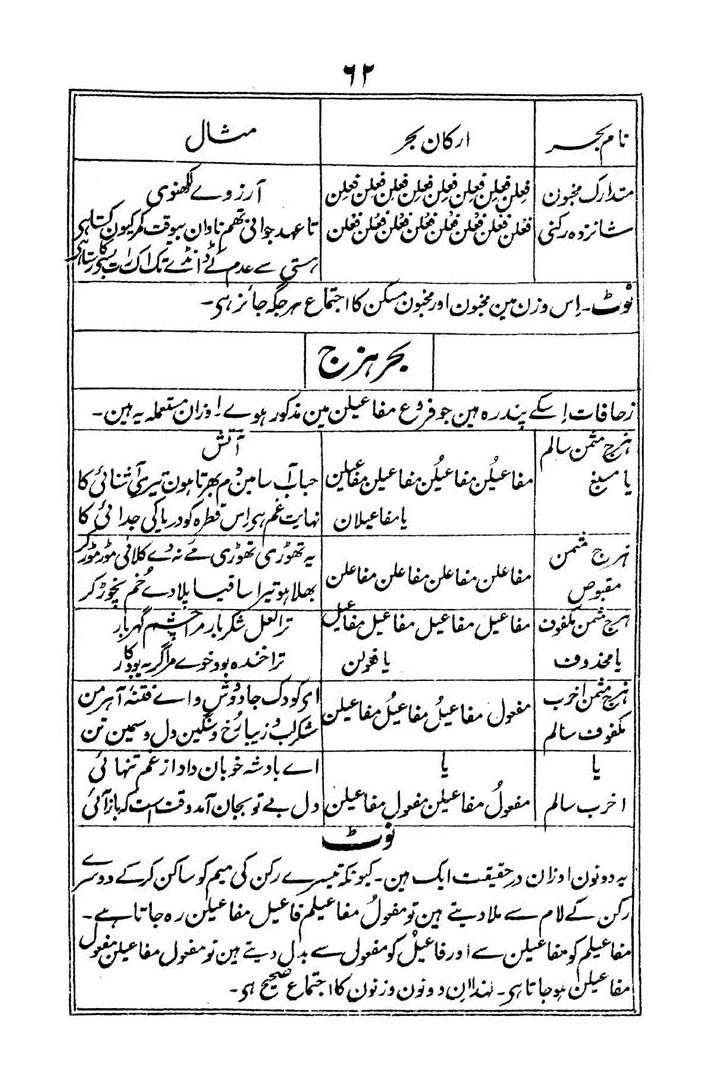 ۶۲
نام بحر ارکان بحر مثال
متدارک مخبون فعِلن فعِلن فعِلن فعِلن فعِلن فعِلن فعِلن فعِلن آرزوے لکھنوی
شانزدہ رکنی فعْلن فعْلن فعْلن فعْلن فعْلن فعْلن فعْلن فعْلن تا عہد جوانی تھم ناداں بیوقت فکر کیوں کرتا ہی
ہستی سے عدم کے ڈانڈے تک اک رات بسر
نوٹ۔ اِس وزن مین مخبون اور مخبون مسکن کا اجتماع ہر جگہ جائز ہی۔
بحر ہزج
زحافات اِسکے پندرہ ہین جو فروع مفاعیلن مین مذکور ہوے۔ اوزان مستعملہ یہ ہین۔
ہزج مثمن سالم آتش
یا مسبغ مفاعیلُن مفاعیلُن مفاعیلن مفاعیلن حباب آسا مین دم بھرتا ہون تیری آشنائی کا
یا مفاعیلان نہایت غم ہی اِس قطرہ کو دریا کی جدائی کا
ہزج مثمن یہ تھوڑی تھوڑی مے نہ دے کلائی موڑ موڑ کر
مقبوض مفاعلن مفاعلن مفاعلن مفاعلن بھلا ہو تیرا ساقیا پلا دے خُم نچوڑ کر
ہزج مثمن مکفوف مفاعیل مفاعیل مفاعیل مفاعیل ترا لعل شکر بار مرا چشم گہر بار
یا محذوف یا فعولن ترا خندہ بود خوے مرا گریہ بود کار
ہزج مثمن اخرب ای کودک جادووش واے فتنۂ آہرمن
مکفوف سالم مفعول مفاعیلُ مفاعیلُ مفاعیلن شکر لب و زیبا رُخ و سنگین دل و سیمین تن
یا یا اے بادشہ خوبان داد از غم تنہائی
اخرب سالم مفعولُ مفاعیلن مفعول مفاعیلن دل بے تو بجان آمد وقت است کہ باز آئی
نوٹ
یہ دونون اوزان در حقیقت ایک ہین۔ کیونکہ تیسرے رکن کی میم کو ساکن کر کے دوسرے
رکن کے لام سے ملا دیتے ہین تو مفعولُ مفاعیلم فاعیل مفاعیلن رہ جاتا ہے۔
مفاعیلم کو مفاعیلن سے اور فاعیلُ کو مفعول سے بدل دیتے ہین تو مفعول مفاعیلن مفعول
مفاعیلن ہو جاتا ہی۔ لہٰذا اِن دونون وزنون کا اجتماع صحیح ہی۔